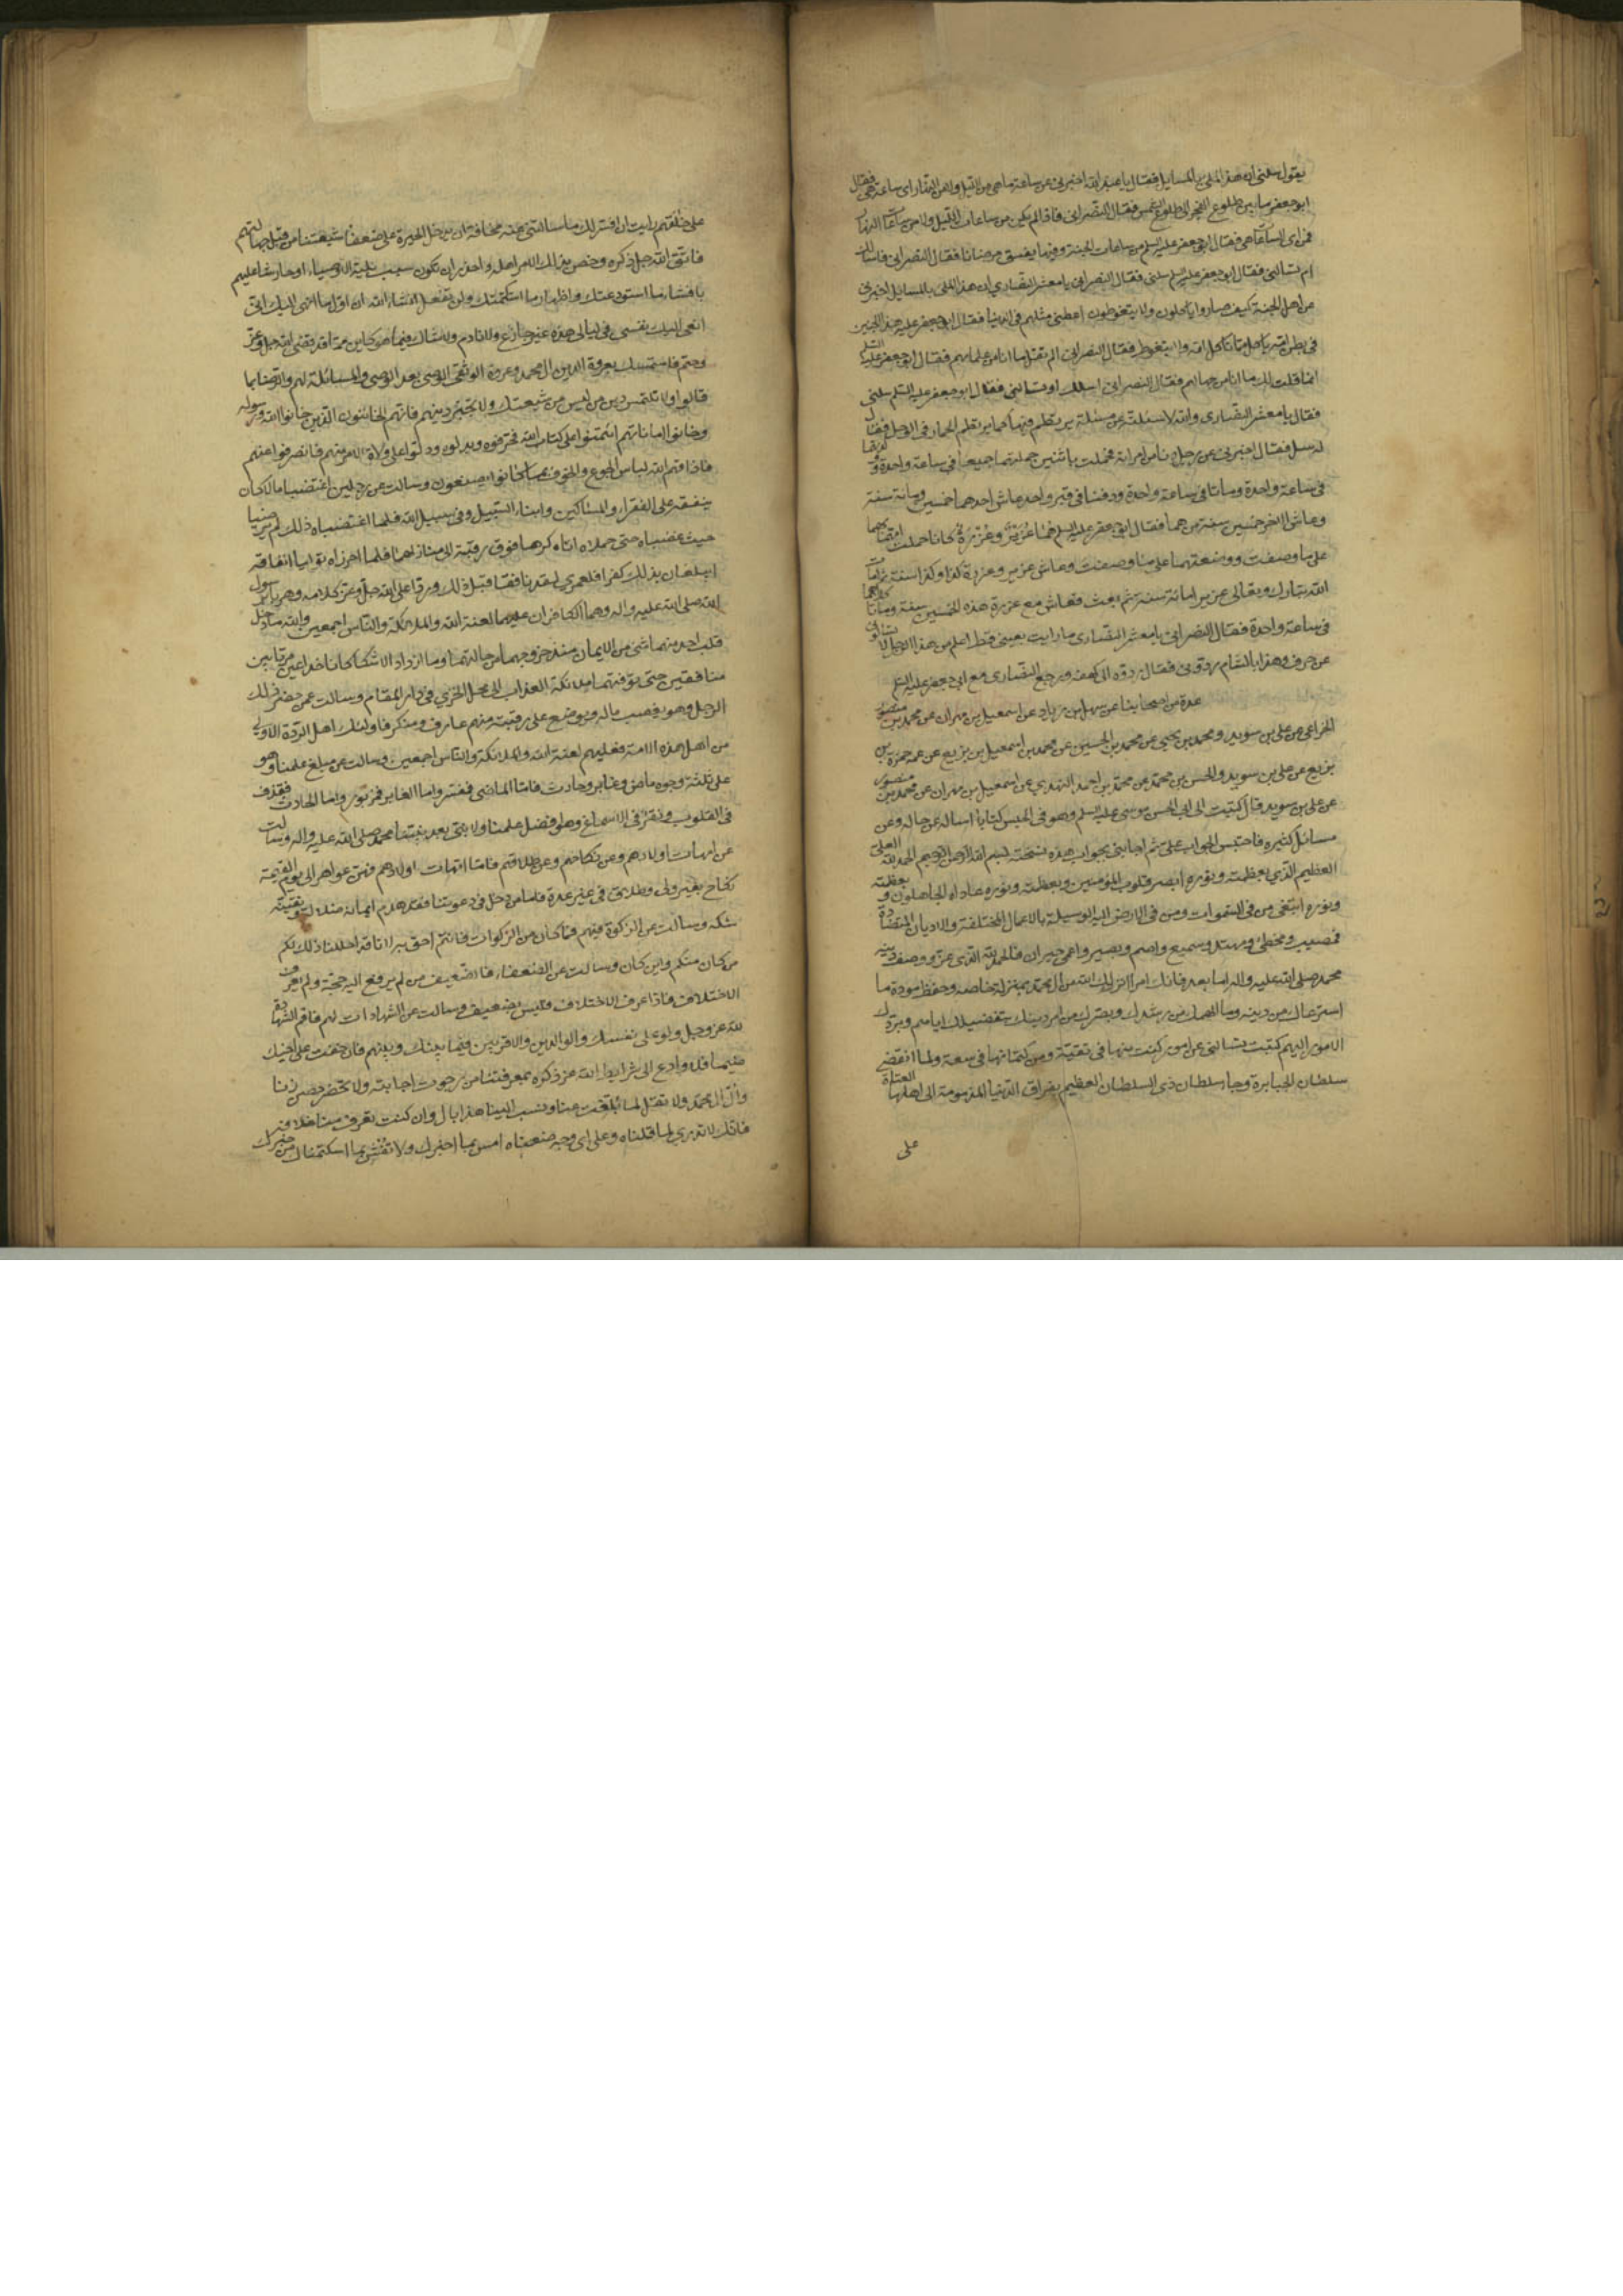 يقول سلنى ان هذا لملى بالمسايل فقال يا عبد الله اخبرنى عن ساعة ما هى من الليل ولا من النهار اى ساعة هى فقال
ابو جعفر ما بين طلوع الفجر الى طلوع الشمس فقال النصرانى فاذا لم يكن من ساعات الليل ولا من ساعات النهار
فمن اى الساعات هى فقال ابو جعفر عليه السلم من ساعات الجنة وفيها يفيق مرضانا فقال النصرانى فاسالك
ام تسالنى فقال ابو جعفر عليه السلم سلنى فقال النصرانى يا معشر النصارى ان هذا لملى بالمسايل اخبرنى
عن اهل الجنة كيف صاروا ياكلون ولا يتغوطون اعطنى مثلهم فى الدنيا فقال ابو جعفر عليه هذا الجنين
فى بطن امه ياكل مما تاكل امه ولا يتغوط فقال النصرانى الم تقل ما انا من علمائهم فقال ابو جعفر عليه السلم
انما قلت لك ما انا من جهالهم فقال النصرانى اسئلك او تسالنى فقال ابو جعفر عليه السلم سلنى
فقال يا معشر النصارى والله لاسئلنه عن مسئلة يرتطم فيها كما يرتطم الحمار فى الوحل فقال
له سل فقال اخبرنى عن رجل دنا من امراته فحملت باثنين حملتهما جميعا فى ساعة واحدة وولدتهما
فى ساعة واحدة وماتا فى ساعة واحدة ودفنا فى قبر واحد عاش احدهما خمسين ومائة سنة
وعاش الاخر خمسين سنة من هما فقال ابو جعفر عليه السلم هما عزير وعزرة كانا حملت امهما بهما
على ما وصفت ووضعتهما على ما وصفت وعاش عزير وعزرة كذا وكذا سنة ثم امات
الله تبارك وتعالى عزيرا مائة سنة ثم بعث فعاش مع عزرة هذه الخمسين سنة وماتا كلاهما
فى ساعة واحدة فقال النصرانى يا معشر النصارى ما رايت بعينى قط اعلم من هذا الرجل لا تسالونى
عن حرف وهذا بالشام ردونى فقال ردوه الى كهفه ورجع النصارى مع ابى جعفر عليه السلم
عدة من اصحابنا عن سهل بن زياد عن اسمعيل بن مهران عن محمد بن منصور
الخزاعى عن على بن سويد ومحمد بن يحيى عن محمد بن الحسين عن محمد بن اسمعيل بن بزيع عن عمه حمزة بن
بزيع عن على بن سويد والحسن بن محمد عن محمد بن احمد النهدى عن اسمعيل بن مهران عن محمد بن منصور
عن على بن سويد قال كتبت الى ابى الحسن موسى عليه السلم وهو فى الحبس كتابا اساله عن حاله وعن
مسائل كثيرة فاحتبس الجواب على ثم اجابنى بجواب هذه نسخته بسم الله الرحمن الرحيم الحمد لله العلى
العظيم الذى بعظمته ونوره ابصر قلوب المؤمنين وبعظمته ونوره عاداه الجاهلون وبعظمته
ونوره ابتغى من فى السموات ومن فى الارض اليه الوسيلة بالاعمال المختلفة والاديان المتضادة
فمصيب ومخطئ ومهتد وسميع واصم وبصير واعمى حيران فالحمد لله الذى عز ووصف دينه
محمد صلى الله عليه واله اما بعد فانك امرا انزلك الله من ال محمد بمنزلة خاصه وحفظ مودة ما
استرعاك من دينه وما الهمك من رشدك وبصرك من امر دينك بتفضيلك اياهم وبردك
الامور اليهم كتبت تسالنى عن امور كنت منها فى تقية ومن كتمانها فى سعة فلما انقضى
سلطان الجبابرة وجا سلطان ذى السلطان العظيم بفراق الدنيا المذمومة الى اهلها العتاة
على
على خالقهم رايت ان افسر لك ما سالتنى عنه مخافة ان يدخل الحيرة على ضعفا شيعتنا من قبل جهالتهم
فاتق الله جل ذكره وخص بذلك الامر اهله واحذر ان تكون سبب بلية الاوصياء او حارشا عليهم
بافشاء ما استودعتك واظهار ما استكتمتك ولن تفعل انشاء الله ان اول ما انهى اليك انى
انعى اليك نفسى فى ليالى هذه غير جازع ولا نادم ولا شاك فيما هو كاين مما قد قضى الله جل وعز
وحتم فاستمسك بعروة الدين ال محمد وعروة الوثقى الوصى بعد الوصى والمسالمة لهم والرضا بما
قالوا ولا تلتمس دين من ليس من شيعتك ولا تحبن دينهم فانهم الخائنون الذين خانوا الله ورسوله
وخانوا اماناتهم ائتمنوا على كتاب الله فحرفوه وبدلوه ودلوا على ولاة الامر منهم فانصرفوا عنهم
فاذاقهم الله لباس الجوع والخوف بما كانوا يصنعون وسالت عن رجلين اغتصبا مالا كان
ينفقه على الفقراء والمساكين وابناء السبيل وفى سبيل الله فلما اغتصباه ذلك لم يرضيا
حيث غصباه حتى حملاه اياه كرها فوق رقبته الى منازلهما فلما احرزاه توليا انفاقه
ايبلغان بذلك كفرا فلعمرى لقد نافقا قبل ذلك وردا على الله جل وعز كلامه وهزئا برسول
الله صلى الله عليه واله وهما الكافران عليهما لعنة الله والملائكة والناس اجمعين والله ما دخل
قلب احد منهما شئ من الايمان منذ خروجهما من حالتهما وما ازدادا الا شكا كانا خداعين مرتابين
منافقين حتى توفتهما ملائكة العذاب الى محل الخزى فى دار المقام وسالت عمن حضر ذلك
الرجل وهو يغصب ماله ويوضع على رقبته منهم عارف ومنكر فاولئك اهل الردة الاولى
من اهل هذه الامة فعليهم لعنة الله والملائكة والناس اجمعين وسالت عن مبلغ علمنا وهو
على ثلثة وجوه ماض وغابر وحادث فاما الماضى فمفسر واما الغابر فمزبور واما الحادث فقذف
فى القلوب ونقر فى الاسماع وهو افضل علمنا ولا نبى بعد نبينا محمد صلى الله عليه واله وسالت
عن امهات اولادهم وعن نكاحهم وعن طلاقهم فاما امهات اولادهم فهن عواهر الى يوم القيمة
نكاح بغير ولى وطلاق فى غير عدة فاما من دخل فى دعوتنا فقد هدم ايمانه ضلاله ويقينه
شكه وسالت عن الزكوة فيهم فما كان من الزكوات فانتم احق به لانا قد احللنا ذلك لكم
من كان منكم واين كان وسالت عن الضعفاء فالضعيف من لم يرفع اليه حجة ولم يعرف
الاختلاف فاذا عرف الاختلاف فليس بضعيف وسالت عن الشهادات لهم فاقم الشهادة
لله عز وجل ولو على نفسك والوالدين والاقربين فيما بينك وبينهم فان خفت على اخيك
ضيما فلا وادع الى شرايط الله عز ذكره بمعرفتنا من رجوت اجابته ولا تحضر حصن زنا
ووال ال محمد ولا تقل لما بلغك عنا ونسب الينا هذا باطل وان كنت تعرف منا خلافه
فانك لا تدرى لما قلناه وعلى اى وجه وضعناه امن بما اخبرك ولا تفش بما استكتمناك من خبرك